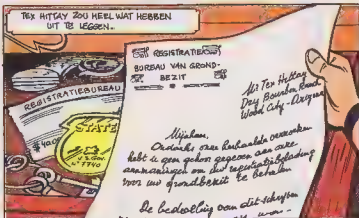 TEX HITTAY ZOU HEEL WAT HEBBEN
UIT TE LEGGEN..
REGISTRATIE
BUREAU VAN GROND-
BEZIT
REGISTRATIEBUREAU
STATE
U.S. GOV.
N° 7740
Mr Tex Hittay
Dry Bourbon Ranch
Wood City - Arizona
Mijnheer,
Ondanks onze herhaalde verzoeken
hebt u geen gehoor gegeven aan onze
aanmaningen om uw registratiebelasting
voor uw grondbezit te betalen
De bedoeling van dit schrijven